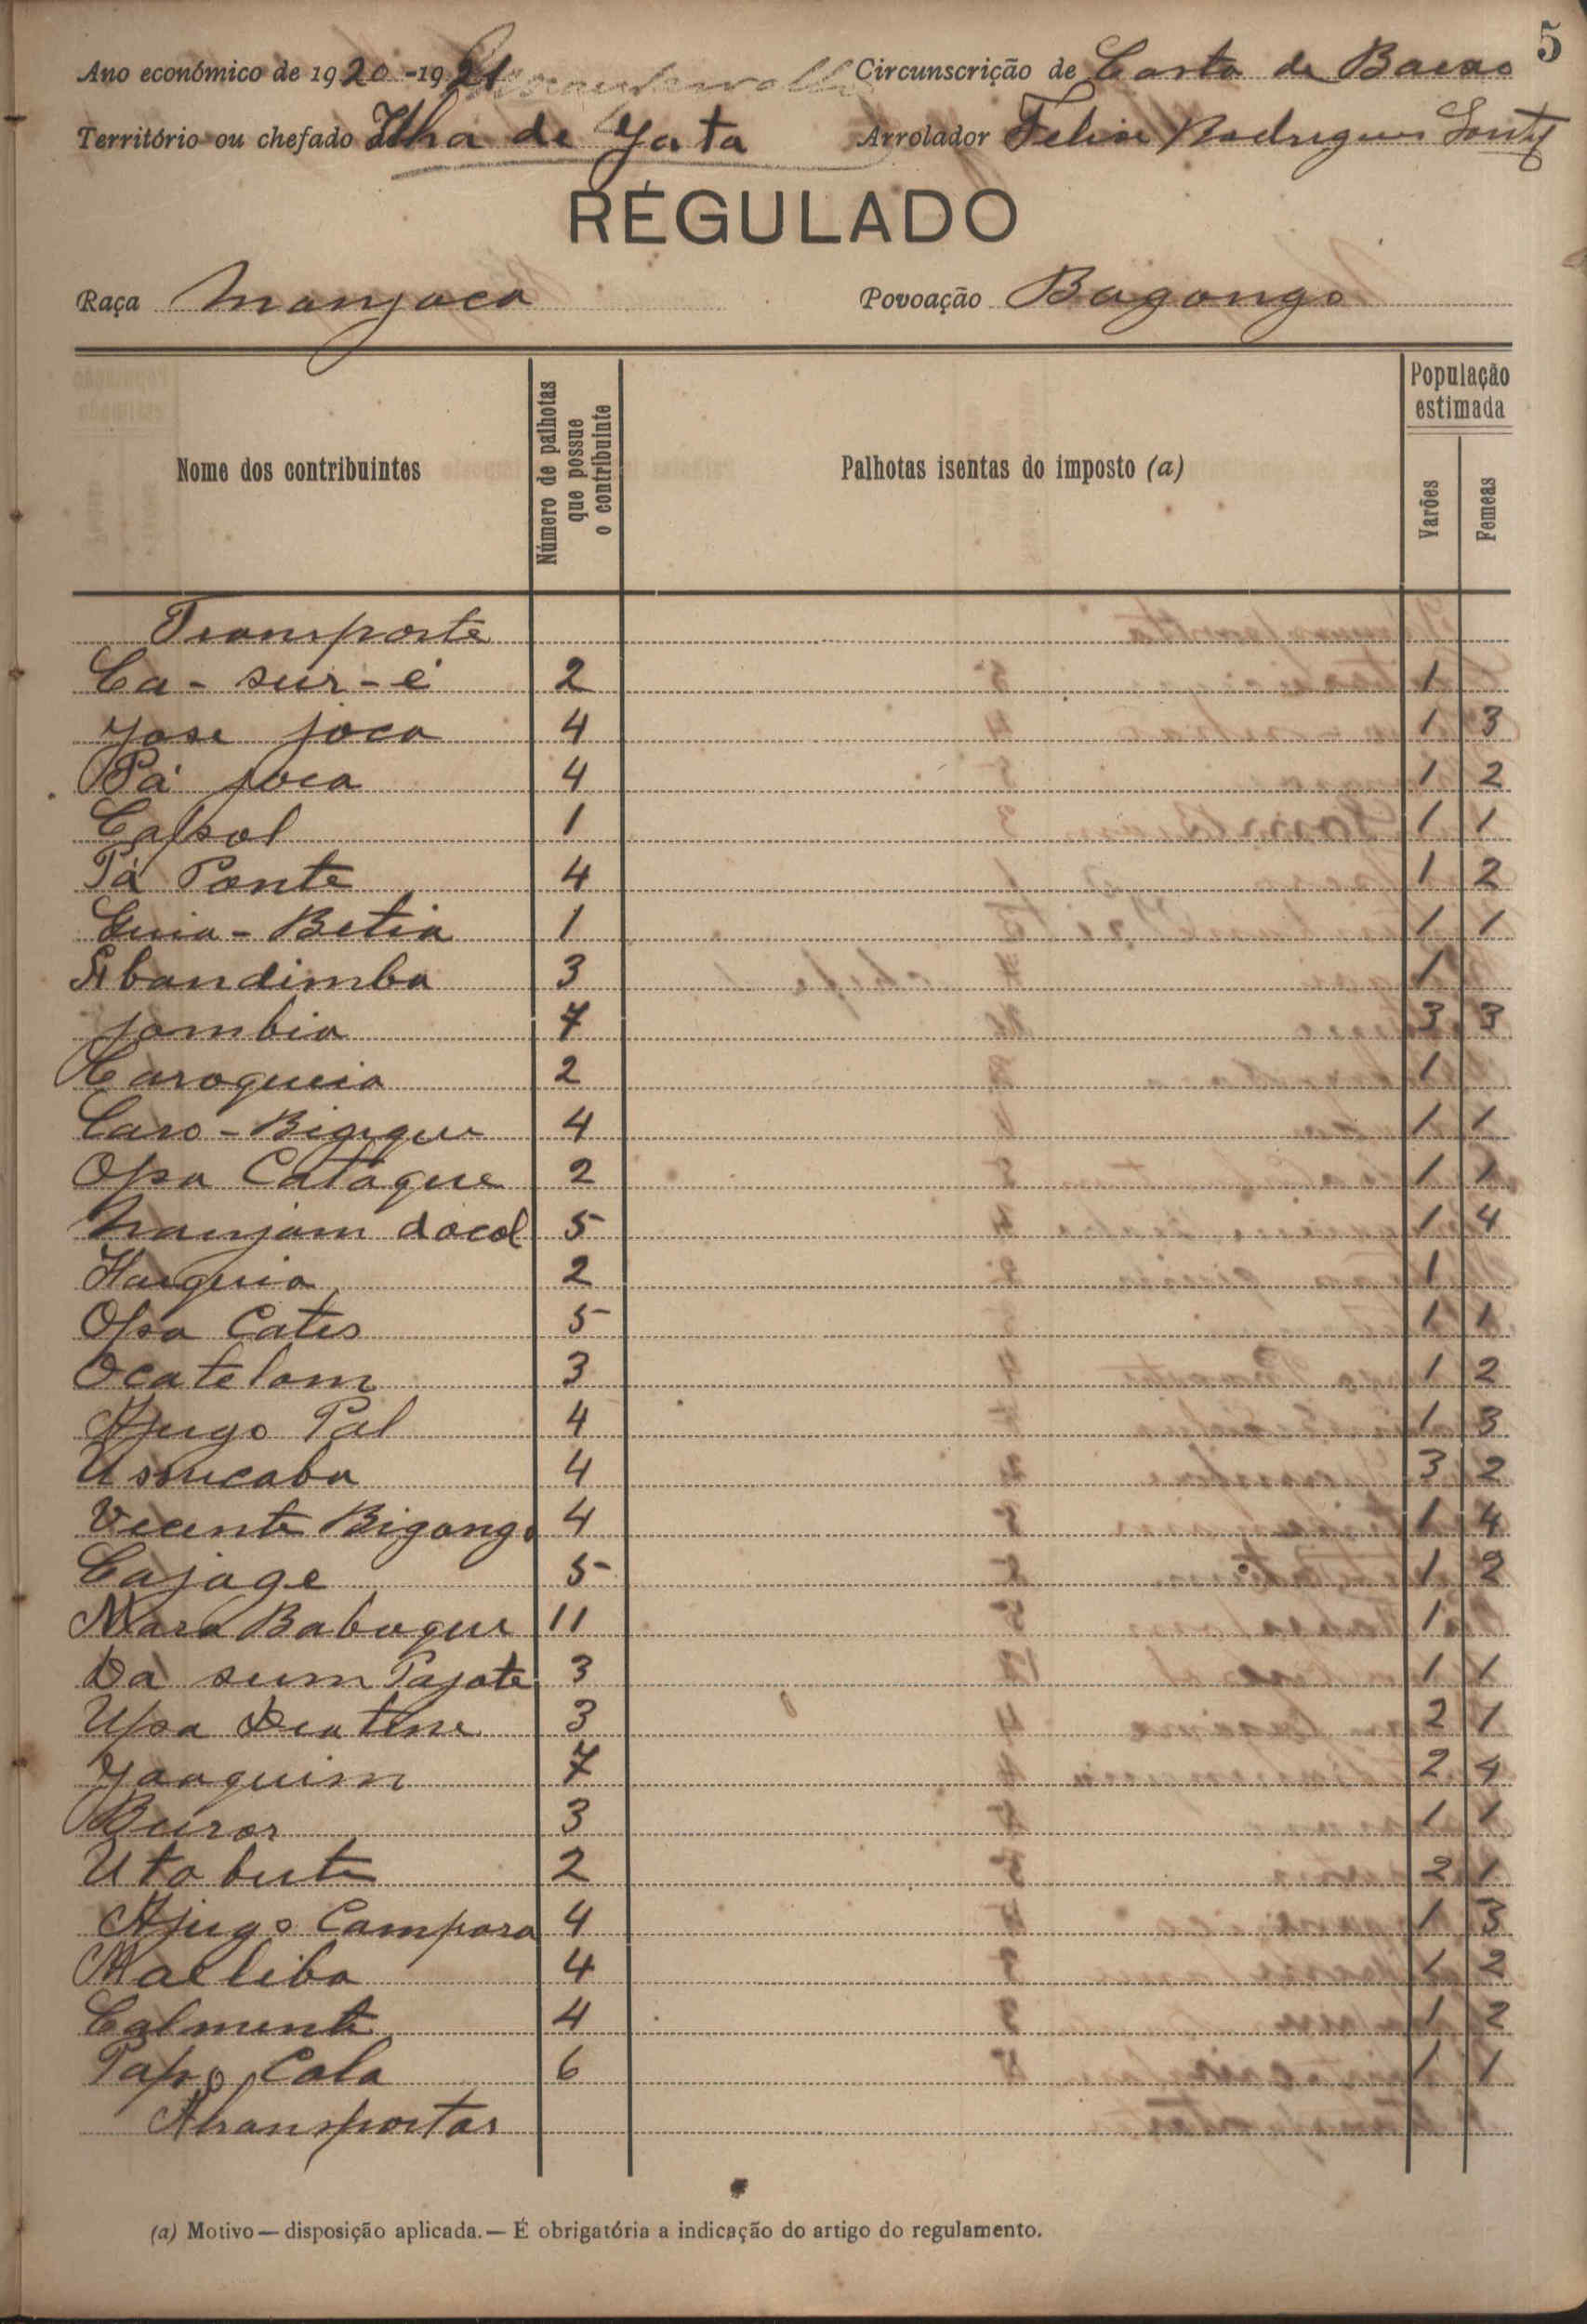 5
Ano económico de 1920-1921 Circunscrição de Costa de Baixo
Território ou chefado Ilha de Jata Arrolador Felix Rodrigues
REGULADO
Raça Manjaca Povoação Bugongo
Nome dos contribuintes Número de palhotas que possue o contribuinte Palhotas isentas do imposto (a) População estimada Varões Femeas
Transporte
Ca-sur-é 2 1
Jose joca 4 1 3
Pá joca 4 1 2
Capsol 1 1 1
Pá Ponte 4 1 2
Guia-Betia 1 1 1
Abandimba 3 1
jombia 7 3 3
Caroqueia 2 1
Caro-Bigique 4 1 1
Opa Catáque 2 1 1
Nanjam docol 5 1 4
Hanguia 2 1
Opa Cates 5 1 1
Ocatelam 3 1 2
Ajugo Pal 4 1 3
Usoucaba 4 3 2
Vicente Bigongo 4 1 4
Cajage 5 1 2
Mara Babuque 11 1
Da sum Pajote 3 1 1
Upa 3 2 1
Joaquim 7 2 4
Buror 3 1 1
Uto bute 2 2 1
Ajugo Campora 4 1 3
Maeliba 4 1 2
Calmente 4 1 2
Papo Cala 6 1 1
A transportar
(a) Motivo — disposição aplicada. — É obrigatória a indicação do artigo do regulamento.